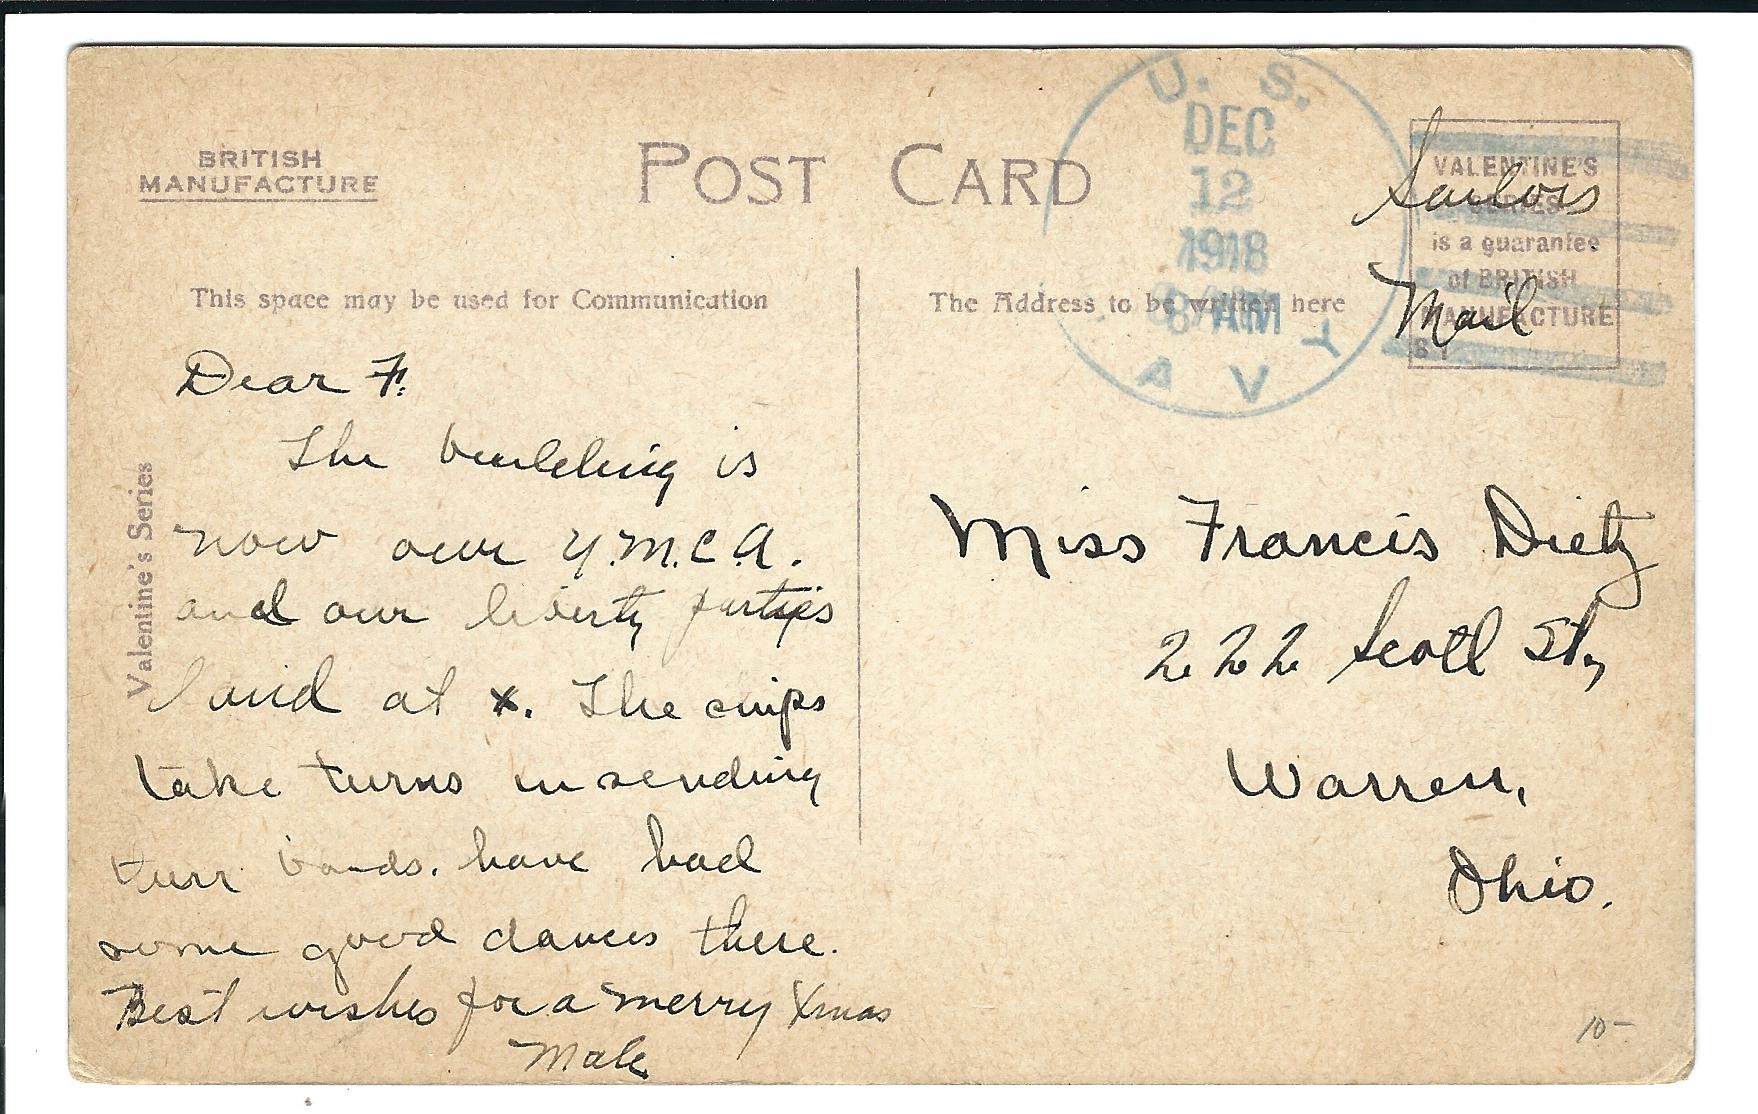 BRITISH
MANUFACTURE
POST CARD
U. S.
NAVY
DEC
12
1918
8 AM
VALENTINE'S
SERIES
is a guarantee
of BRITISH
MANUFACTURE
Sailors
Mail
This space may be used for Communication
The Address to be written here
Valentine's Series
Dear F.
The building is
now our Y.M.C.A.
and our liberty parties
land at x. The ships
take turns in sending
bands. have had
some good dances there.
Best wishes for a merry Xmas
Miss Francis Dietz
222 Scott St,
Warren,
Ohio.
10-